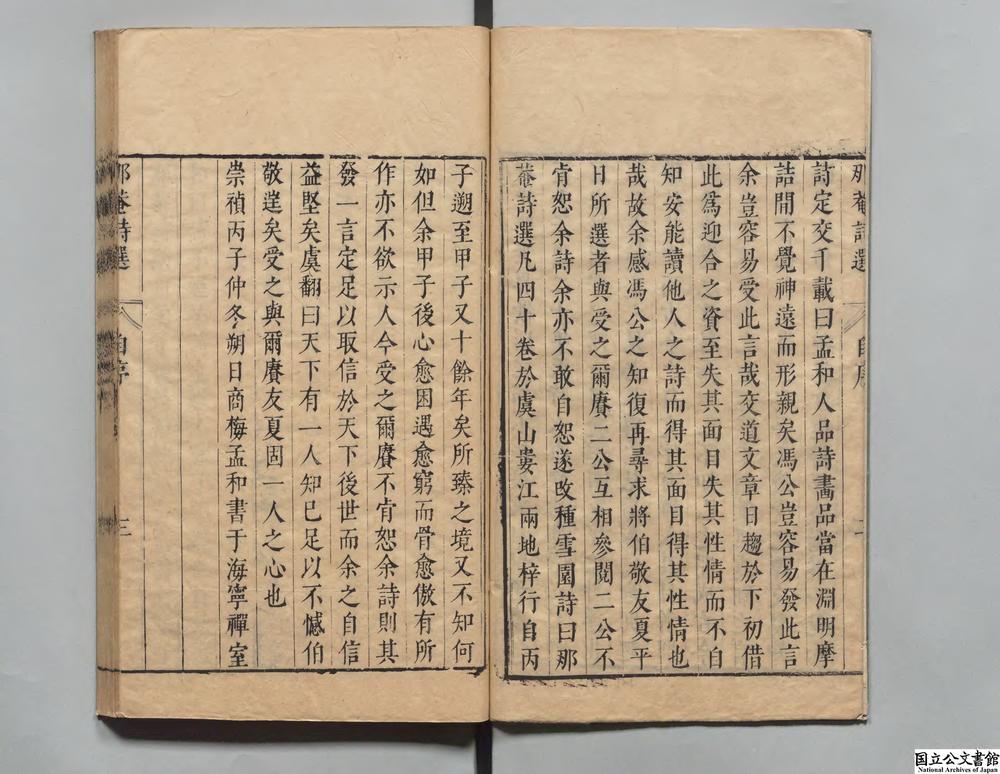 那菴詩選 自序 二
詩定交千載曰孟和人品詩畵品當在淵明摩
詰閒不覺神遠而形親矣馮公豈容易發此言
余豈容易受此言哉交道文章日趨於下初借
此爲迎合之資至失其面目失其性情而不自
知安能讀他人之詩而得其面目得其性情也
哉故余感馮公之知復再尋求將伯敬友夏平
日所選者與受之爾賡二公互相參閱二公不
肯恕余詩余亦不敢自恕遂改種雪園詩曰那
菴詩選凡四十卷於虞山婁江兩地梓行自丙
子遡至甲子又十餘年矣所臻之境又不知何
如但余甲子後心愈困遇愈窮而骨愈傲有所
作亦不欲示人今受之爾賡不肯恕余詩則其
發一言定足以取信於天下後世而余之自信
益堅矣虞翻曰天下有一人知已足以不憾伯
敬逹矣受之與爾賡友夏固一人之心也
崇禎丙子仲冬朔日商梅孟和書于海寧禪室
那菴詩選 自序 三
国立公文書館
National Archives of Japan